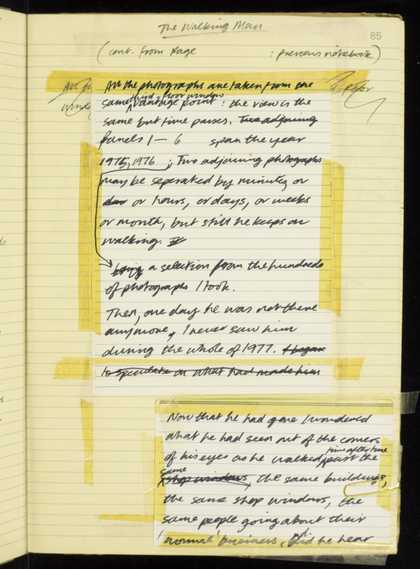 The Walking Man
85
(cont. from page : previous notebook)
All the photographs are taken from the
same third floor window vantage point : the view is the
same but time passes. Two adjoining
panels 1 – 6 span the year
1975, 1976 ; Two adjoining photographs
may be seperated by minutes or
or hours, or days, or weeks
or month, but still he keeps on
walking.
a selection from the hundreds
of photographs I took.
Then, one day he was not there
anymore, I never saw him
during the whole of 1977. I began
to speculate on what had made him
Now that he had gone I wondered
what he had seen out of the corners
of his eyes as he walked past the
same shop windows, the same buildings,
the same shop windows, the
same people going about their
'normal' business, Did he hear